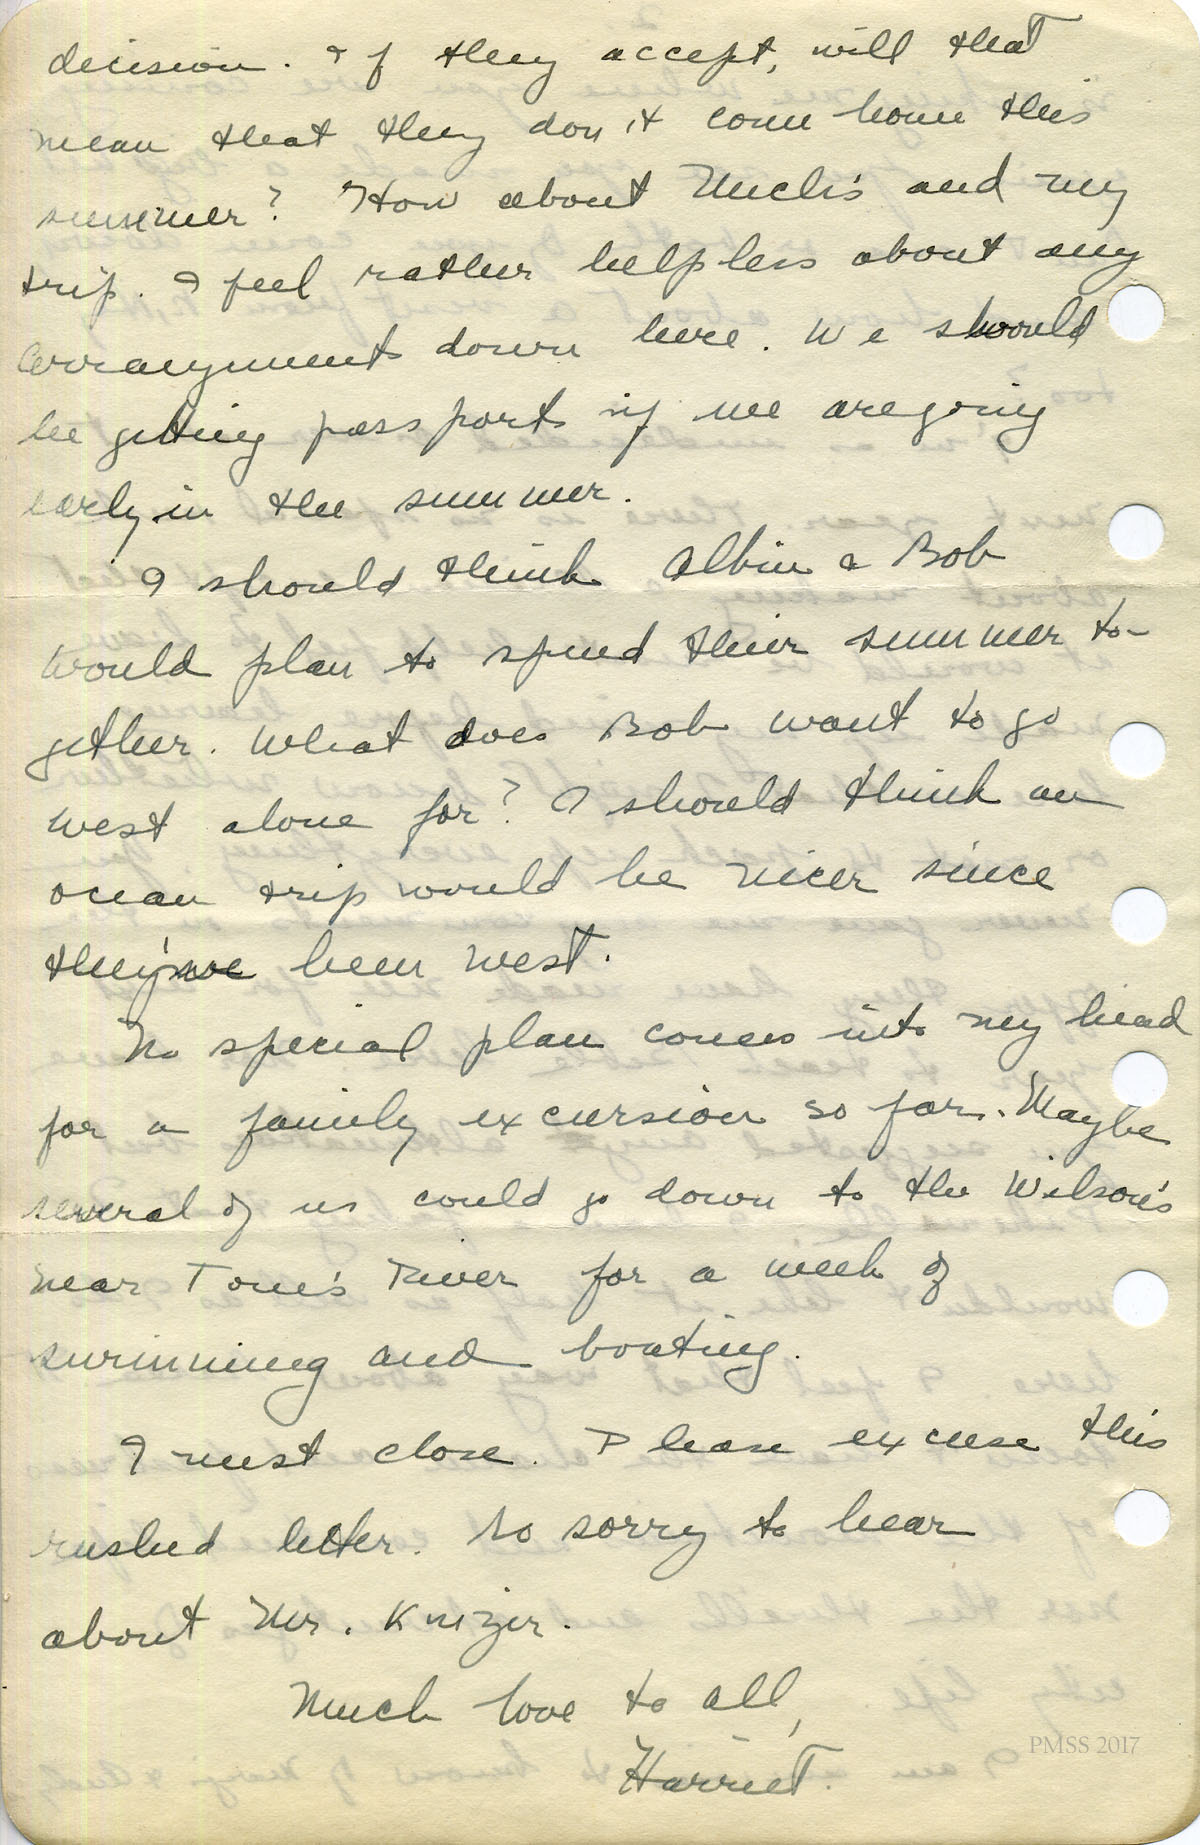 decision. If they accept, will that
mean that they don't come home this
summer? How about Uncle's and my
trip. I feel rather helpless about any
arrangements down here. We should
be getting passports if we are going
early in the summer.
I should think Albin & Bob
would plan to spend their summer to-
gether. What does Bob want to go
west alone for? I should think an
ocean trip would be nicer since
they've been west.
No special plan comes into my head
for a family excursion so far. Maybe
several of us could go down to the Wilson's
near Tom's River for a week of
swimming and boating.
I must close. Please excuse this
rushed letter. So sorry to hear
about Mr. Knizer.
Much love to all,
Harriet.
PMSS 2017